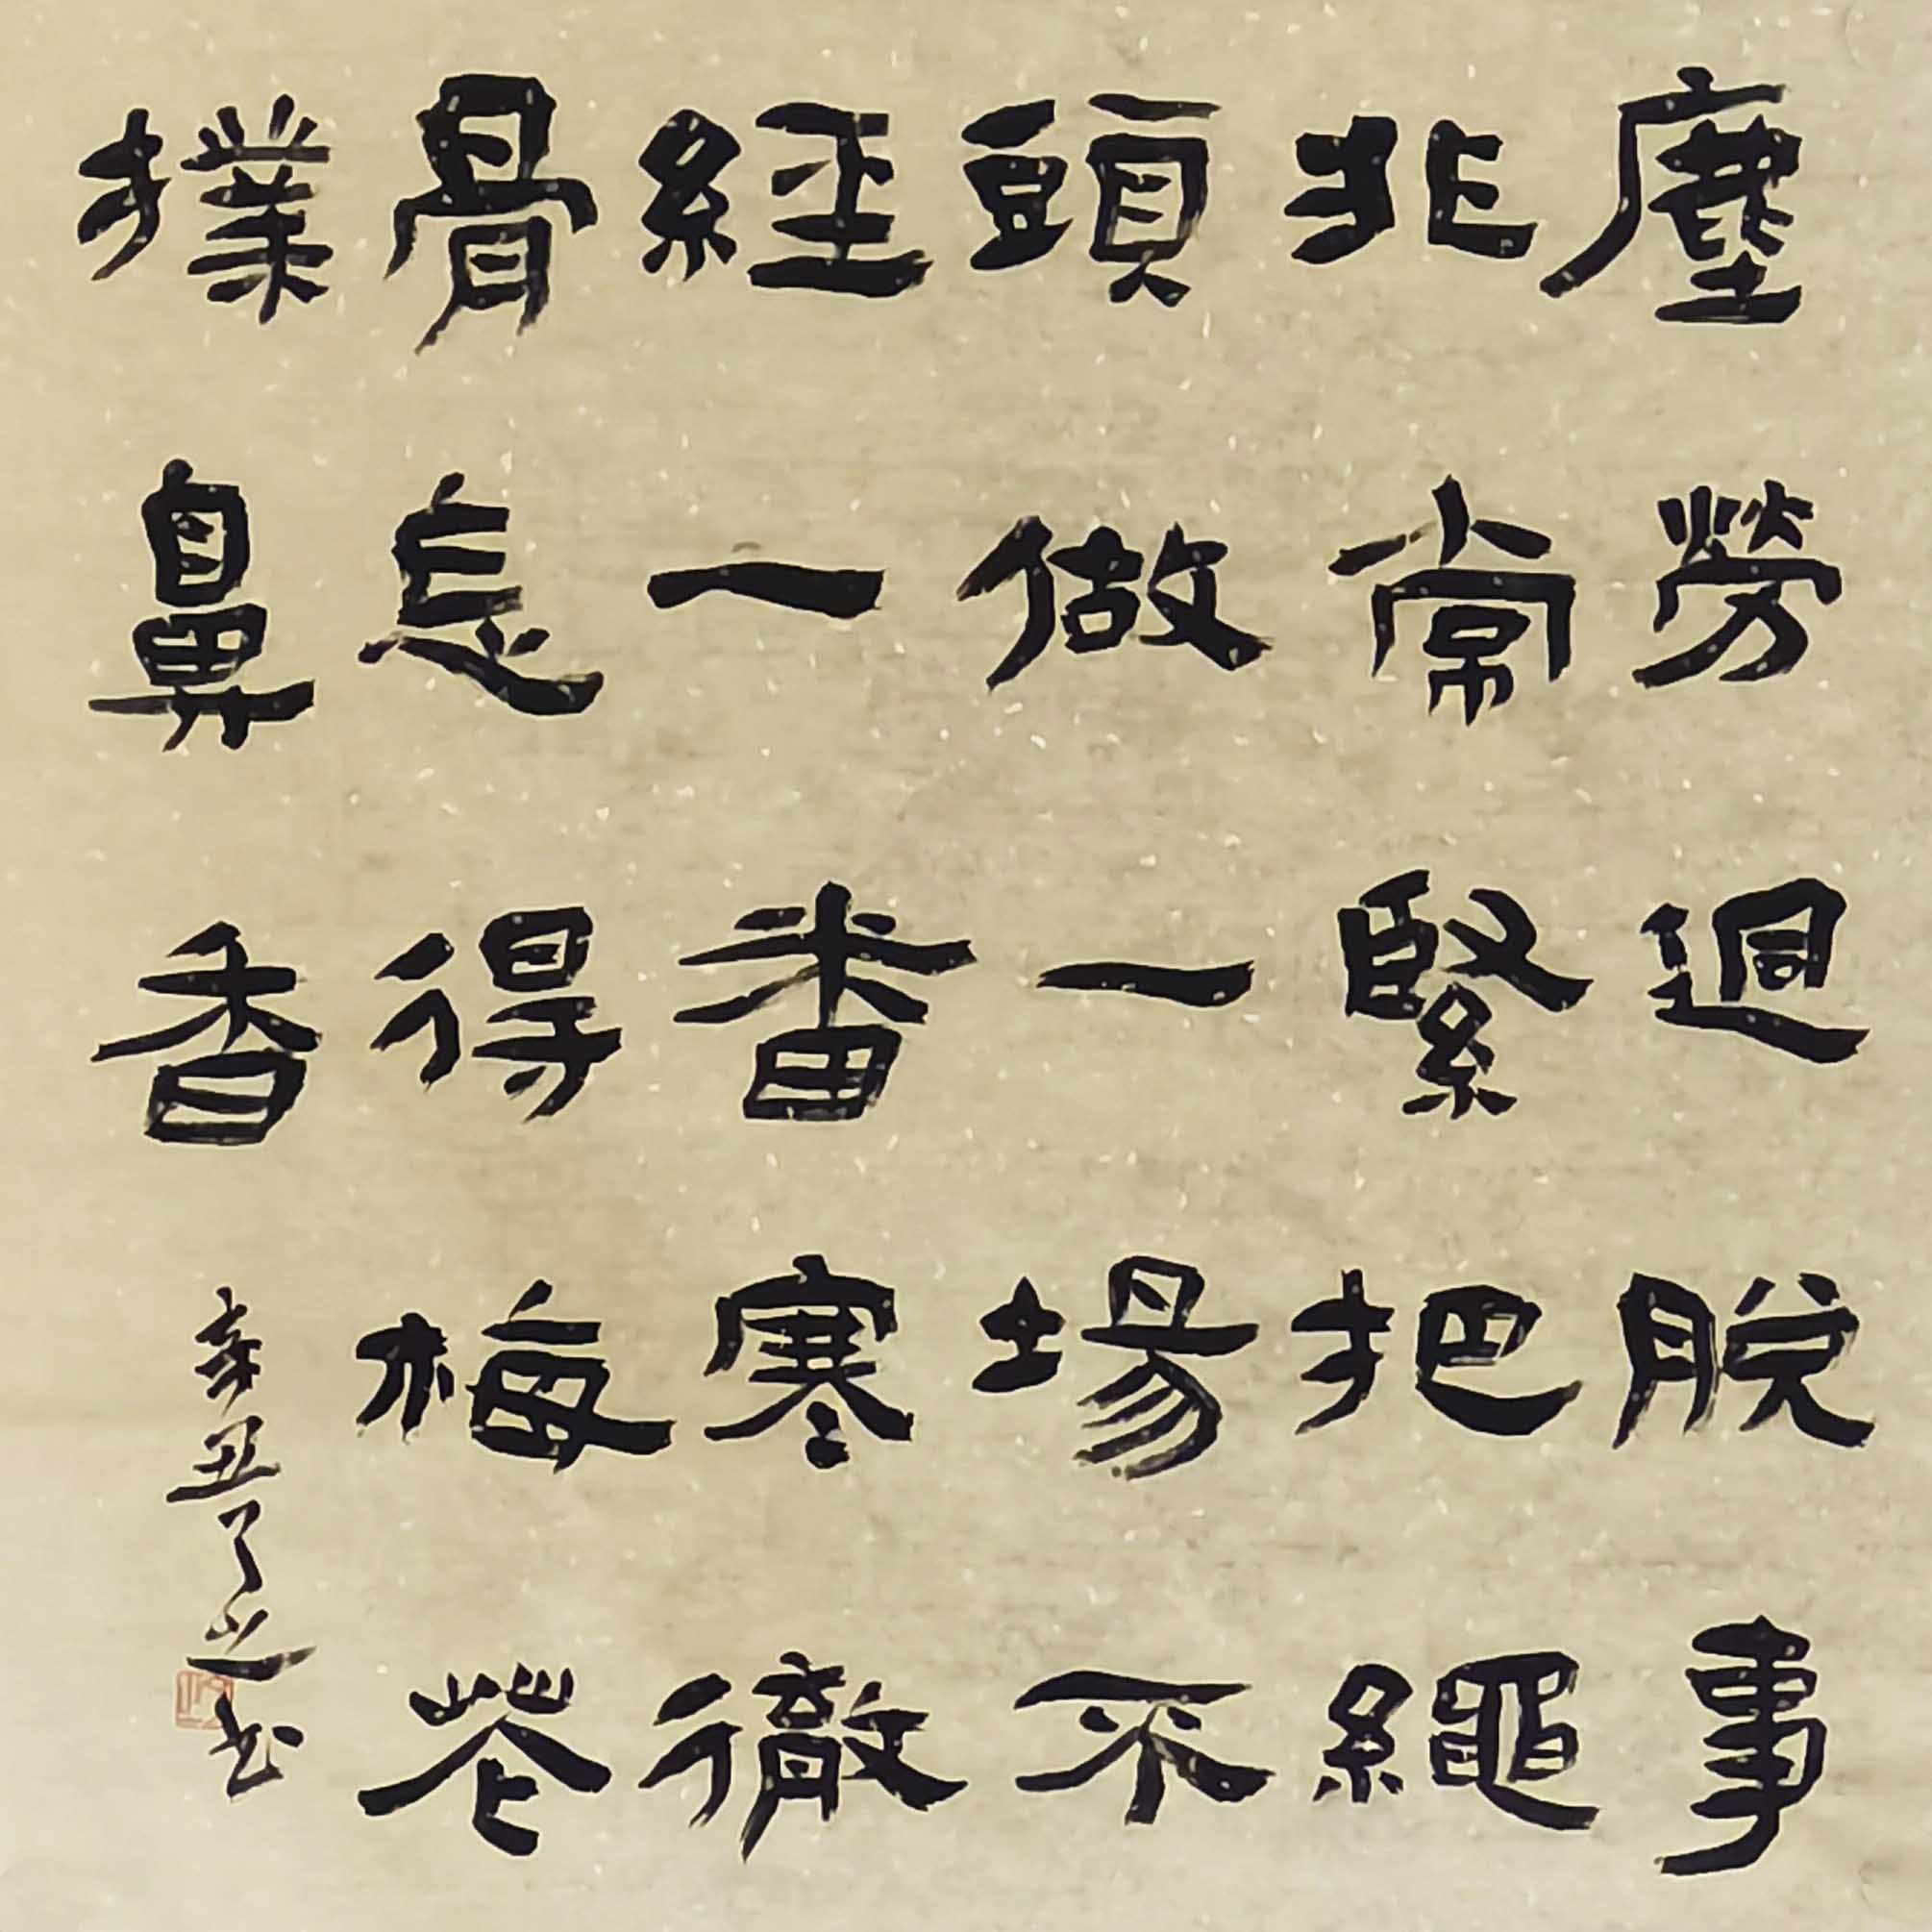 塵勞迥脫事
非常緊把繩
頭做一場不
經一番寒徹
骨怎得梅花
撲鼻香
辛丑了之书